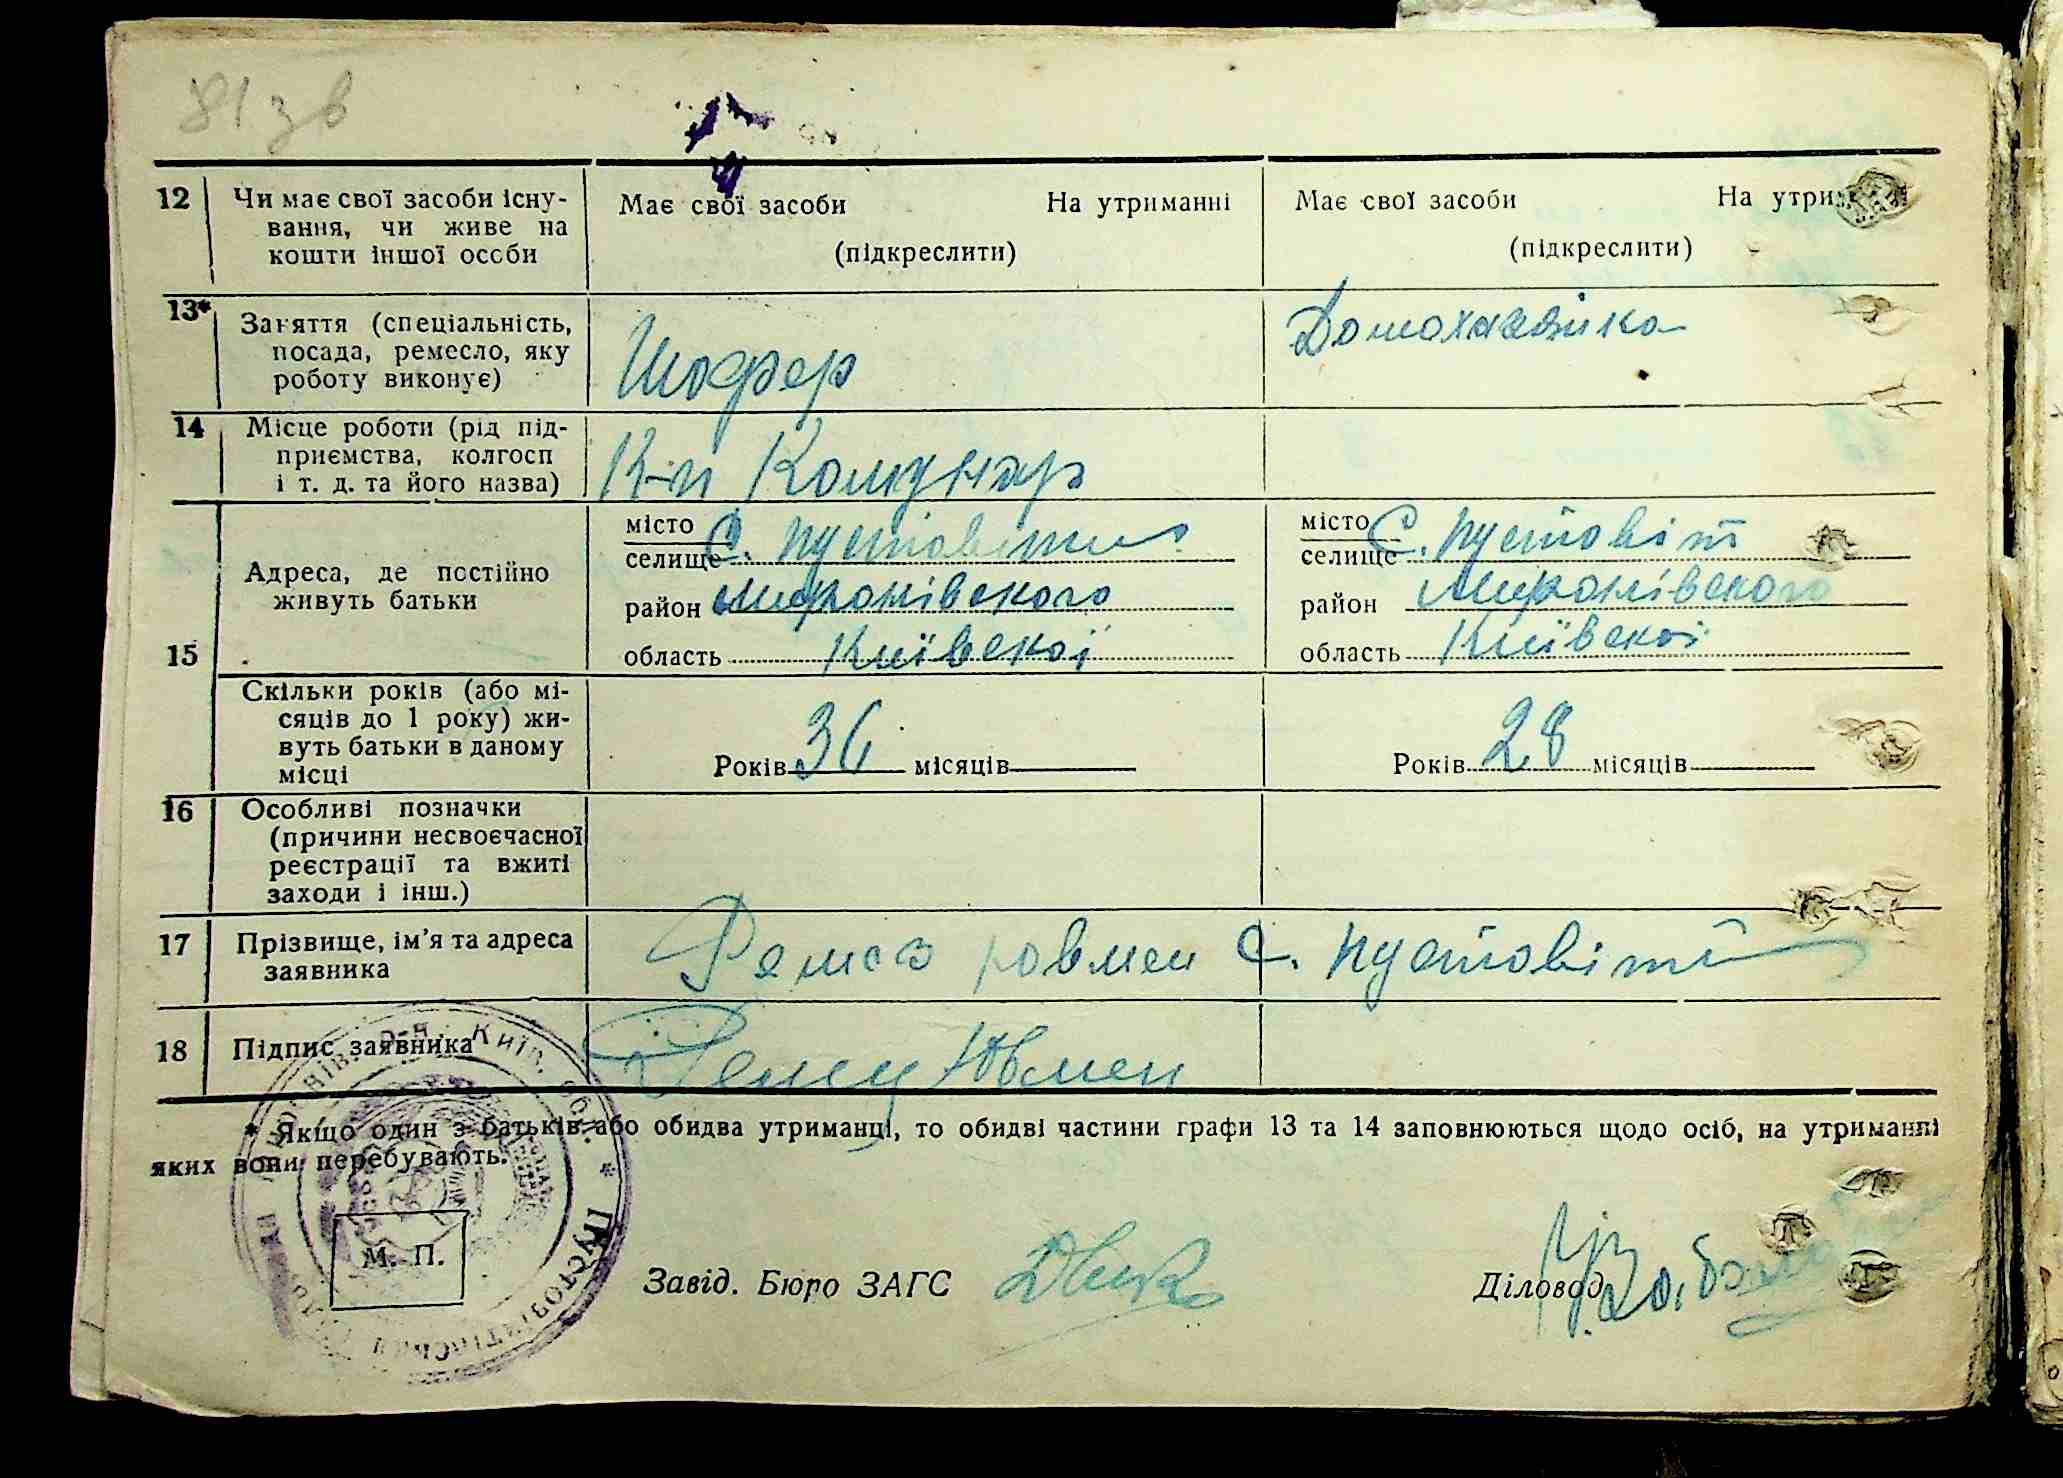 81 зв
12 Чи має свої засоби існу-
вання, чи живе на
кошти іншої особи
Має свої засоби На утриманні
(підкреслити)
Має свої засоби На утри
(підкреслити)
13* Заняття (спеціальність,
посада, ремесло, яку
роботу виконує)
Шофер
Домохазяйка
14 Місце роботи (рід під-
приємства, колгосп
і т. д. та його назва)
К-п Комунар
15
Адреса, де постійно
живуть батьки
місто
селище С. Пустовіти
район Миронівского
область Київскої
місто
селище С. Пустовіт
район Миронівского
область Київскої
Скільки років (або мі-
сяців до 1 року) жи-
вуть батьки в даному
місці
Років 36 місяців
Років 28 місяців
16 Особливі позначки
(причини несвоєчасної
реєстрації та вжиті
заходи і інш.)
17 Прізвище, ім'я та адреса
заявника
С. Пустовіти
18 Підпис заявника
* Якщо один з батьків або обидва утриманці, то обидві частини графи 13 та 14 заповнюються щодо осіб, на утриманні
яких вони перебувають.
М. П.
Завід. Бюро ЗАГС
Діловод